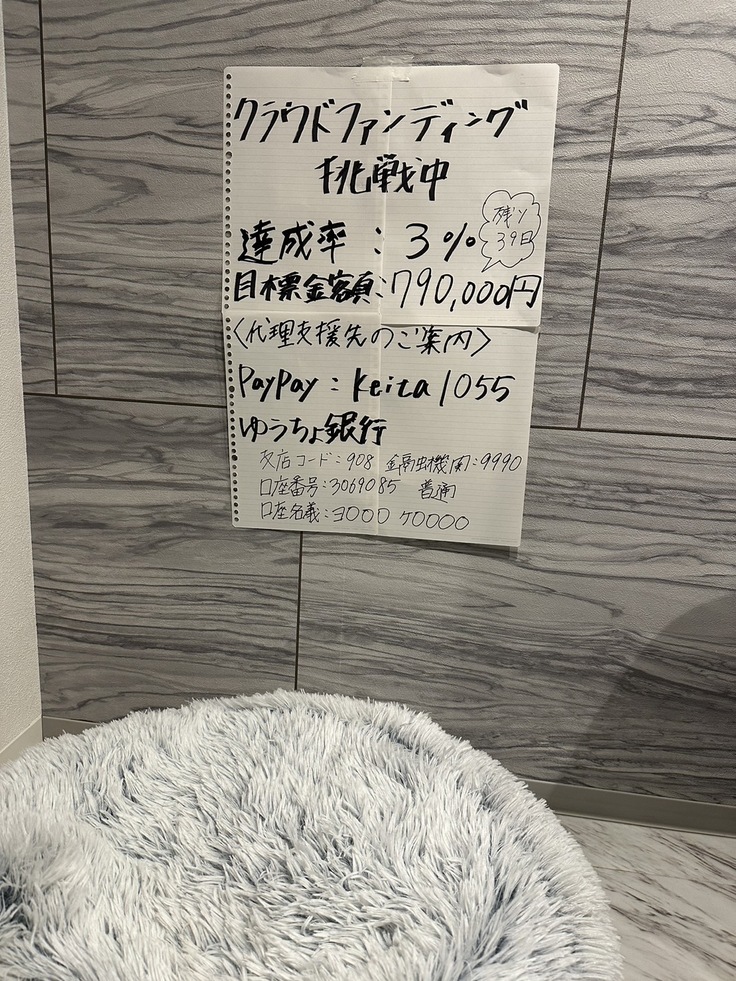 クラウドファンディング
挑戦中
残り
39日
達成率：3%
目標金額：790,000円
〈代理支援先のご案内〉
PayPay：Keita1055
ゆうちょ銀行
支店コード：908 金融機関：9990
口座番号：3069085 普通
口座名義：ヨ〇〇〇 ケ〇〇〇〇